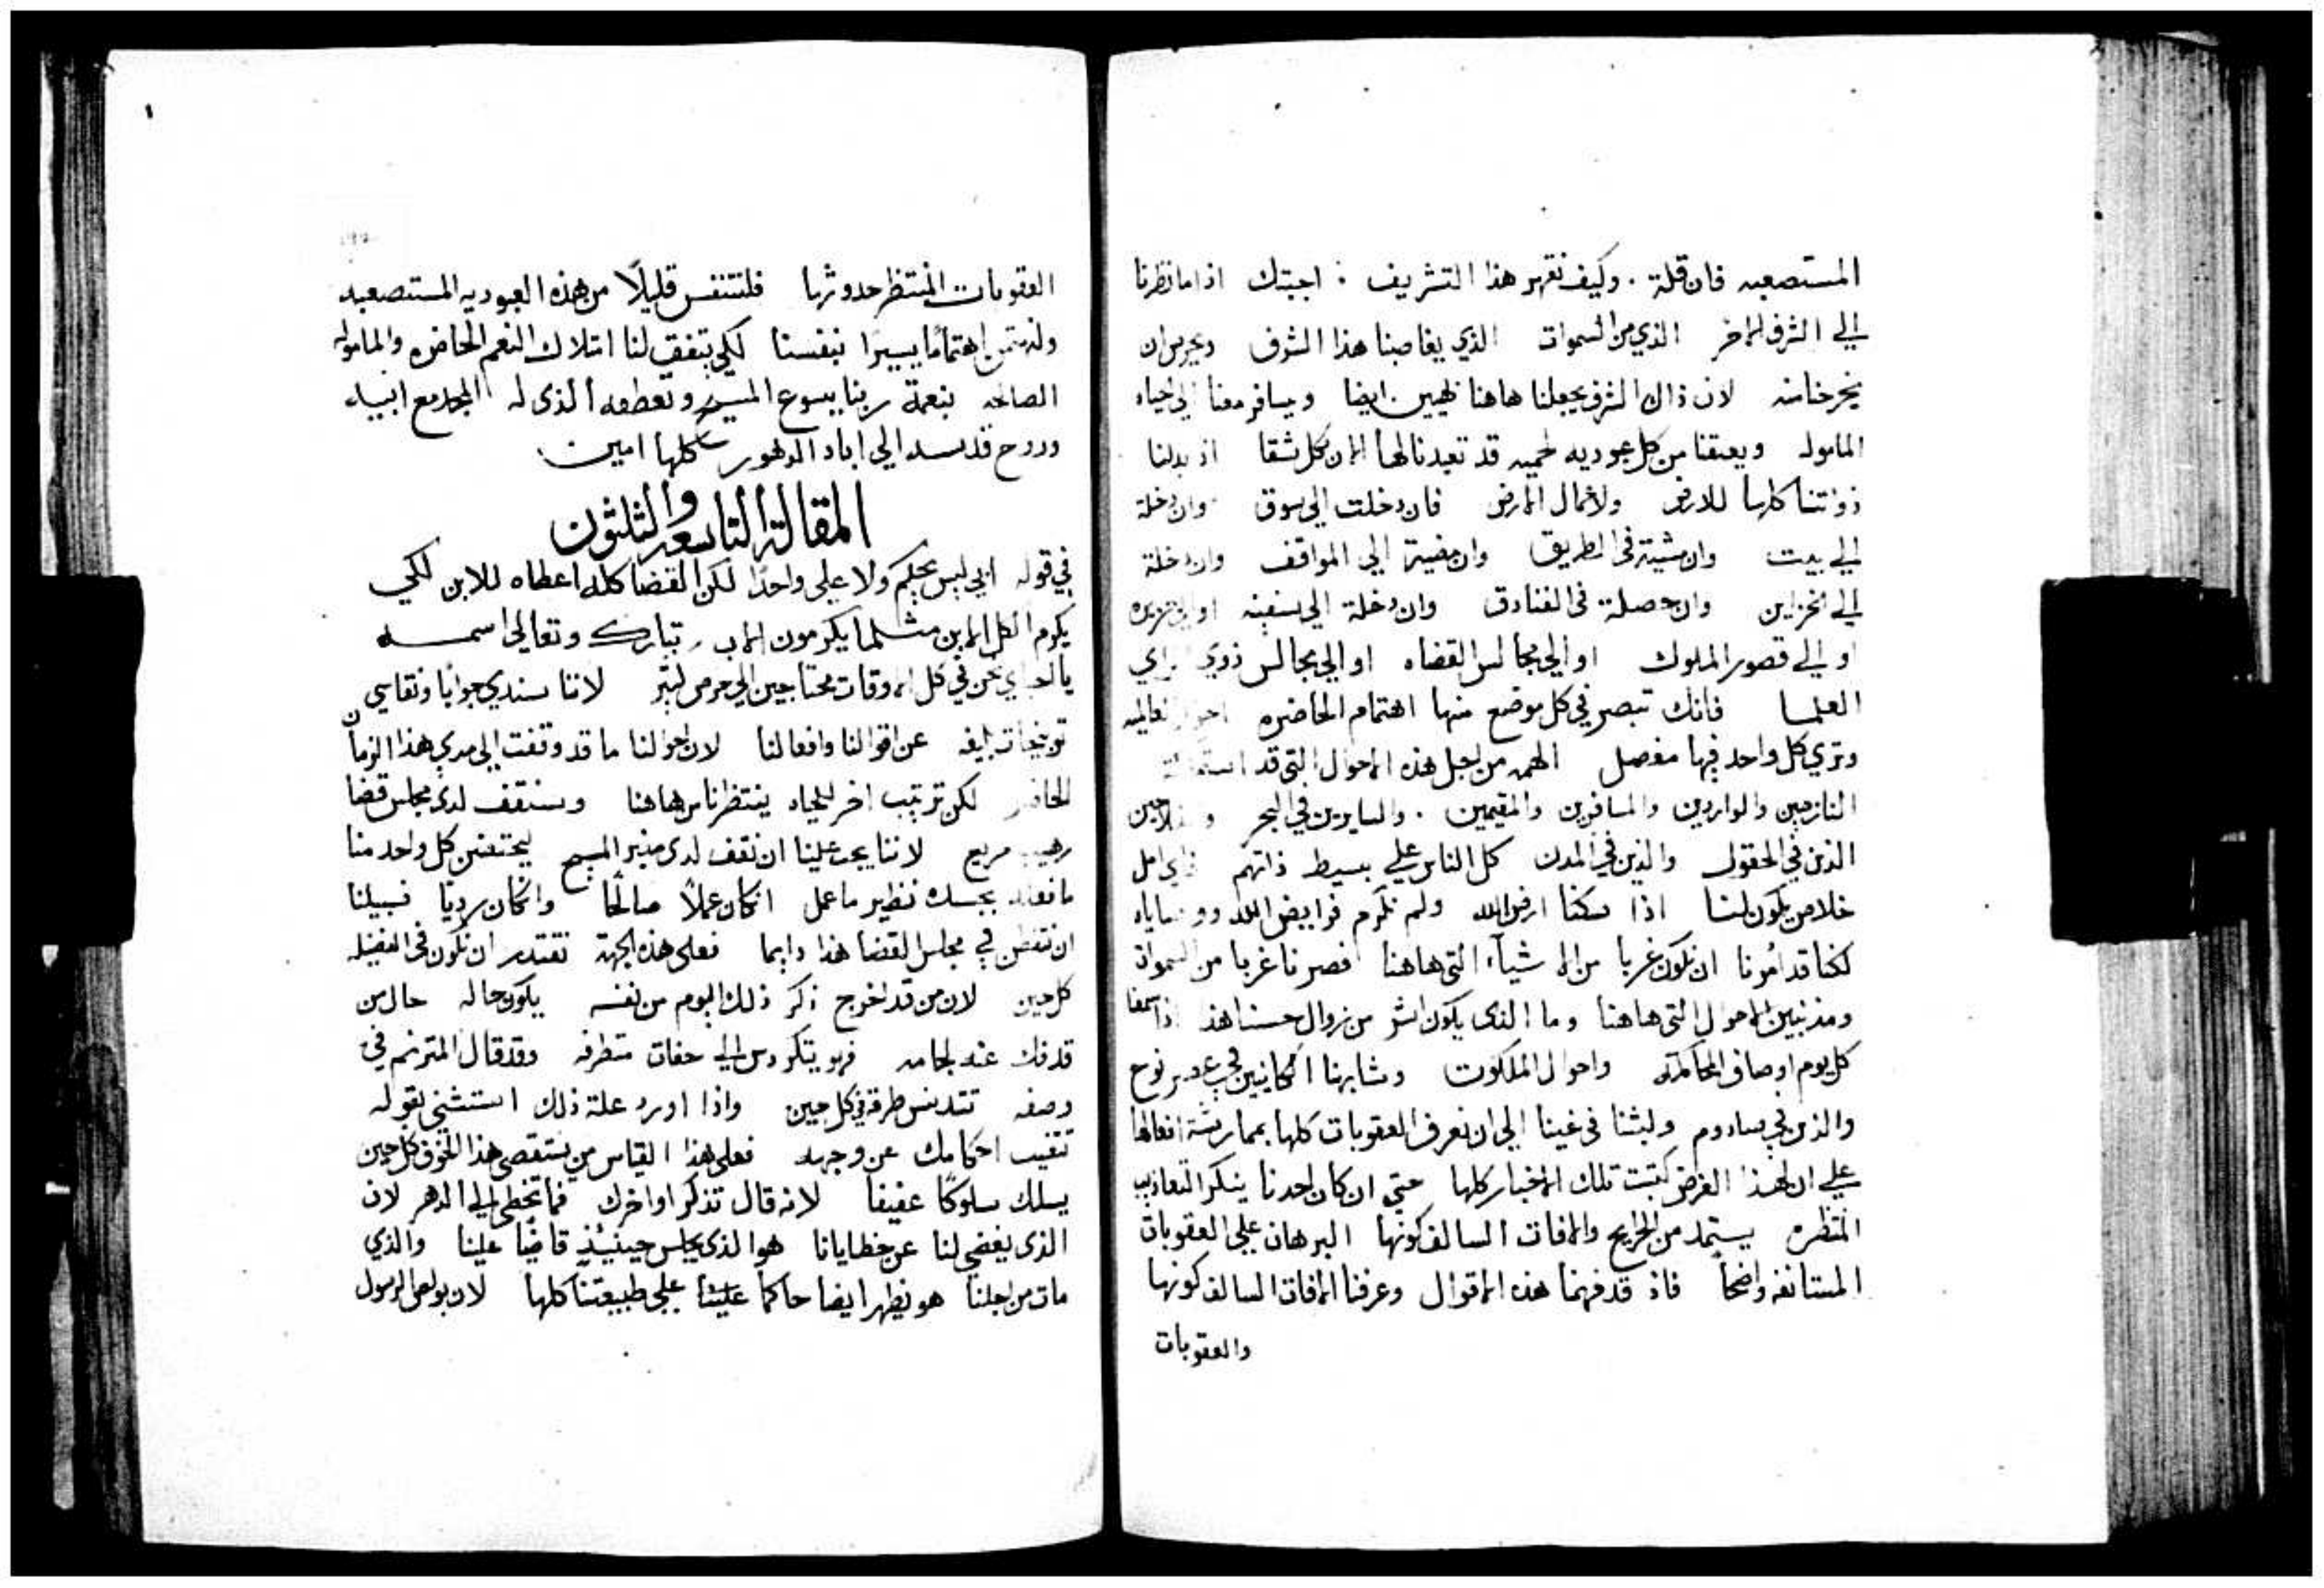 المستصعبه فان قلة . وكيف نقهر هذا التشريف : اجبتك اذا ما نظرنا
الي الشرف الاخر الذي من السموات الذي يغاصبنا هذا الشرف ويحرص ان
يخرجنا منه لان ذاك الشرف يجعلنا هاهنا بهيين ايضا ويسافر معنا الي الحياه
الماموله ويعتقنا من كل عبوديه لحميه قد تعبدنا لها الان كل شقا اذ بدلنا
ذواتنا كلها للارض ولاعمال الارض فان دخلت الي سوق وان دخلة
الي بيت وان مشية في الطريق وان مضية الي المواقف وان دخلة
الي الخزاين وان حصلة في الفنادق وان دخلة الي سفينه او الي جزيره
او الي قصور الملوك او الي مجالس القضاه او الي مجالس ذوي الراي
العلما فانك تبصر في كل موضع منها اهتمام الحاضره احوال العالميه
وتري كل واحد فيها مفصل الهمه من اجل هذه الاحوال التي قد
النازحين والواردين والمسافرين والمقيمين . والسايرين في البحر والفلاحين
الذين في الحقول والذين في المدن كل الناس علي بسيط ذاتهم فاي امل
خلاص يكون لنا اذا سكنا ارض الله ولم نكرم فرايض الله ووصاياه
لكنا قد امرنا ان نكون غربا من الاشيآء التي هاهنا فصرنا غربا من السموات
ومذنبين الاحوال التي هاهنا وما الذي يكون اشر من زوال حسنا هذا اذا سمعنا
كل يوم اوصاف المحاكمه واحوال الملكوت وشابهنا الكاينين في عصر نوح
والذين في سادوم ولبثنا في غينا الي ان نعرف العقوبات كلها بممارسة افعالها
علي ان لهذا الغرض كتبت تلك الاخبار كلها حتي ان كان احدنا ينكر التعاذيب
المنتظره يستمد من الجرايح والافات السالف كونها البرهان علي العقوبات
المستانفه واضحاً فاذ قد فهمنا هذه الاقوال وعرفنا الافات السالف كونها
والعقوبات
العقوبات المنتظر حدوثها فلنتنفس قليلًا من هذه العبوديه المستصعبه
ولنهتمن اهتمامًا يسيرًا بنفسنا لكي يتفق لنا امتلاك النعم الحاضره والماموله
الصالحه بنعمة ربنا يسوع المسيح وتعطفه الذي له المجد مع ابيه
وروح قدسه الي اباد الدهور كلها امين
المقالة التاسعه والثلثون
في قوله ابي ليس يحكم ولا علي واحدًا لكن القضا كله اعطاه للابن لكي
يكرم الكل الابن مثلما يكرمون الاب تبارك وتعالي اسمه
يا احباي نحن في كل الاوقات محتاجين الي حرص كثير لاننا سندي جوابًا ونقاسي
توبيخات بليغه عن اقوالنا وافعالنا لان احوالنا ما قد وقفت الي مدي هذا الزمان
الحاضر لكن ترتيب اخر للحياه ينتظرنا من هاهنا وسنقف لدي مجلس قضا
رهيب مريع لاننا يجب علينا ان نقف لدي منبر المسيح ليحتضن كل واحد منا
ما فعله بجسده نظير ما عمل ان كان عملاً صالحًا وان كان رديًا فسبيلنا
ان نتفطن في مجلس القضا هذا دايما فعلي هذه الجهة نقتدر ان نكون في الفضيله
كل حين لان من قد اخرج ذكر ذلك اليوم من نفسه يكون حاله حال من
قد فك عنه لجامه فهو يتكردس الي حفات متطرفه وقد قال المترنم في
وصفه تتدنس طرقه في كل حين واذا اورد علة ذلك استثني بقوله
تتغيب احكامك عن وجهه فعلي هذا القياس من يستقصي هذا الخوف كل حين
يسلك سلوكًا عفيفًا لانه قال تذكر اواخرك فما تخطي الي الدهر لان
الذي يغضي لنا عن خطايانا هو الذي يجلس حينيذٍ قاضيًا علينا والذي
مات من اجلنا هو يظهر ايضا حاكما علينا علي طبيعتنا كلها لان بولس الرسول